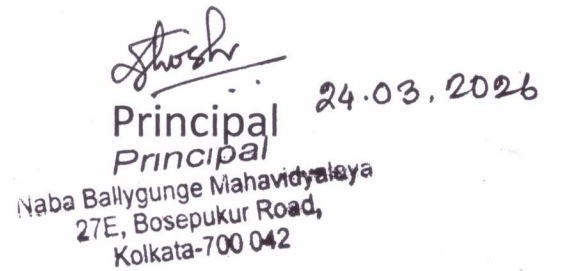 Ghosh
24.03.2026
Principal
Principal
Naba Ballygunge Mahavidyalaya
27E, Bosepukur Road,
Kolkata-700 042